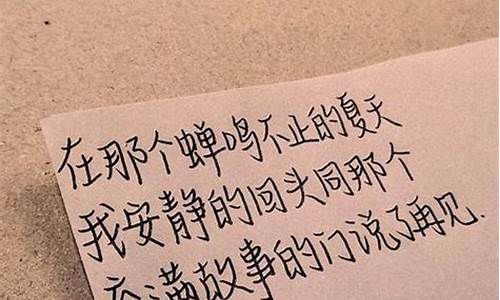 在那个蝉鸣不止的夏天
我安静的回头同那个
充满故事的门说了再见.